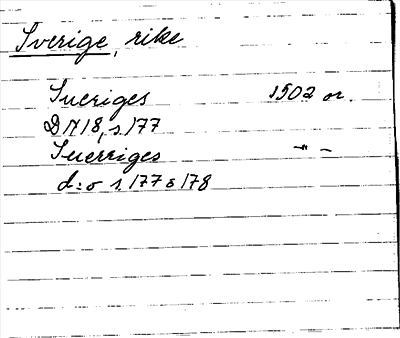 Sverige, rike
Sueriges 1502 or.
DN 18, s. 177
Suerriges —"—
d:o s. 177 o 178